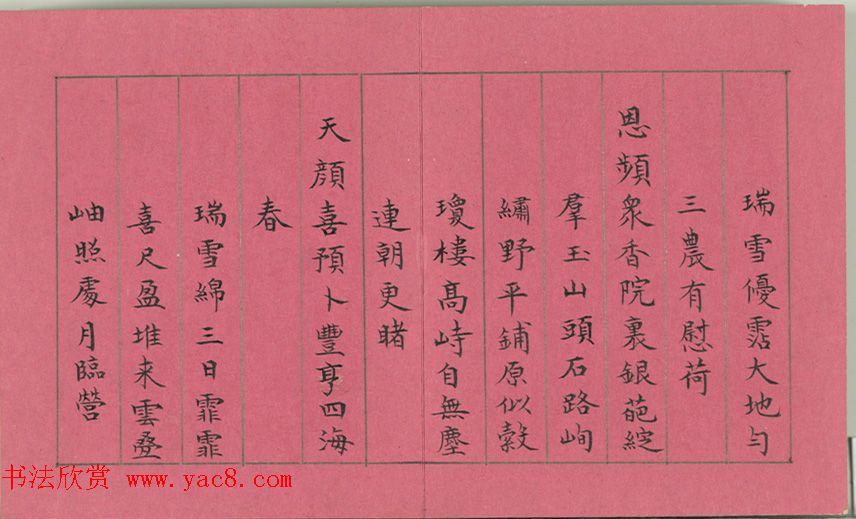 瑞雪優霑大地勻
三農有慰荷
恩頻眾香院裏銀葩綻
羣玉山頭石路峋
繡野平鋪原似縠
瓊樓高峙自無塵
連朝更睹
天顏喜預卜豐亨四海
春
瑞雪綿三日霏霏
喜尺盈堆来雲疊
岫照處月臨營
书法欣赏 www.yac8.com